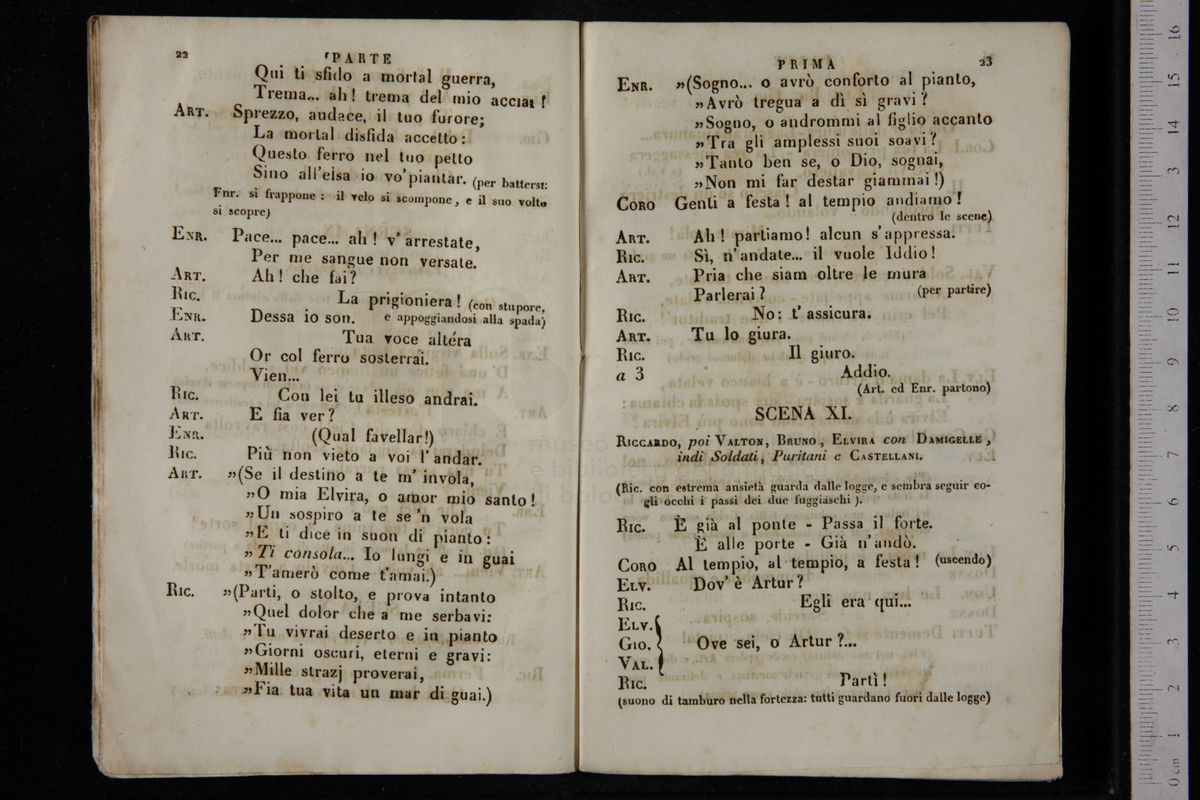 22
PARTE
Qui ti sfido a mortal guerra,
Trema... ah! trema del mio acciar!
ART. Sprezzo, audace, il tuo furore;
La mortal disfida accetto:
Questo ferro nel tuo petto
Sino all'elsa io vo' piantar. (per battersi:
Enr. si frappone: il velo si scompone, e il suo volto
si scopre)
ENR. Pace... pace... ah! v'arrestate,
Per me sangue non versate.
ART. Ah! che fai?
RIC. La prigioniera! (con stupore,
ENR. Dessa io son. e appoggiandosi alla spada)
ART. Tua voce altéra
Or col ferro sosterrai.
Vien...
RIC. Con lei tu illeso andrai.
ART. E fia ver?
ENR. (Qual favellar!)
RIC. Più non vieto a voi l'andar.
ART. »(Se il destino a te m'invola,
»O mia Elvira, o amor mio santo!
»Un sospiro a te se 'n vola
»E ti dice in suon di pianto:
»Ti consola... Io lungi e in guai
»T'amerò come t'amai.)
RIC. »(Parti, o stolto, e prova intanto
»Quel dolor che a me serbavi:
»Tu vivrai deserto e in pianto
»Giorni oscuri, eterni e gravi:
»Mille strazj proverai,
»Fia tua vita un mar di guai.)
PRIMA
23
ENR. »(Sogno... o avrò conforto al pianto,
»Avrò tregua a dì sì gravi?
»Sogno, o andrommi al figlio accanto
»Tra gli amplessi suoi soavi?
»Tanto ben se, o Dio, sognai,
»Non mi far destar giammai!)
CORO Genti a festa! al tempio andiamo!
(dentro le scene)
ART. Ah! partiamo! alcun s'appressa.
RIC. Sì, n'andate... il vuole Iddio!
ART. Pria che siam oltre le mura
Parlerai? (per partire)
RIC. No: t'assicura.
ART. Tu lo giura.
RIC. Il giuro.
a 3 Addio.
(Art. ed Enr. partono)
SCENA XI.
RICCARDO, poi VALTON, BRUNO, ELVIRA con DAMIGELLE,
indi Soldati, Puritani e CASTELLANI.
(Ric. con estrema ansietà guarda dalle logge, e sembra seguir co-
gli occhi i passi dei due fuggiaschi).
RIC. È già al ponte - Passa il forte.
È alle porte - Già n'andò.
CORO Al tempio, al tempio, a festa! (uscendo)
ELV. Dov'è Artur?
RIC. Egli era qui...
ELV.
GIO. Ove sei, o Artur?...
VAL.
RIC. Partì!
(suono di tamburo nella fortezza: tutti guardano fuori dalle logge)
0 cm 1 2 3 4 5 6 7 8 9 10 11 12 13 14 15 16